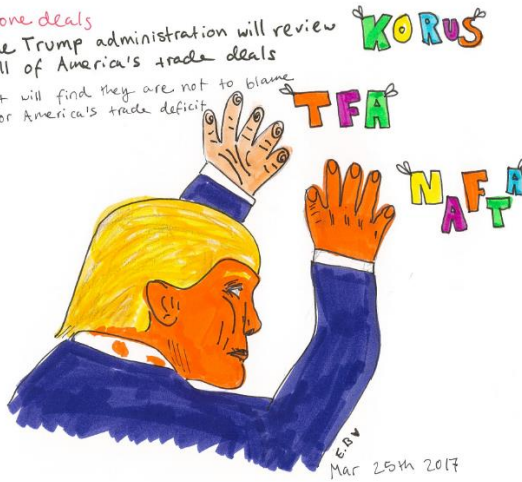 one deals
e Trump administration will review
ll of America's trade deals
t will find they are not to blame
or America's trade deficit
KORUS
TFA
NAFTA
E.B
Mar 25th 2017